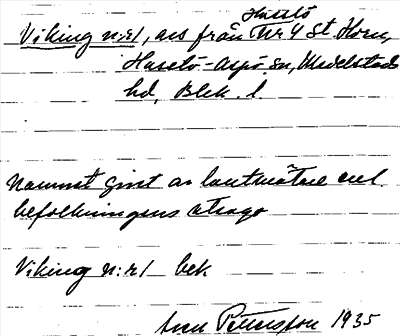 Hasslö
Viking n:r1, avs från Nr 4 St. Horn,
Hasslö-Aspö sn, Medelstads
hd, Blek. l
Namnet givet av lantmätare enl.
befolkningens utsago
Viking n:r1 bek
Pettersson 1935